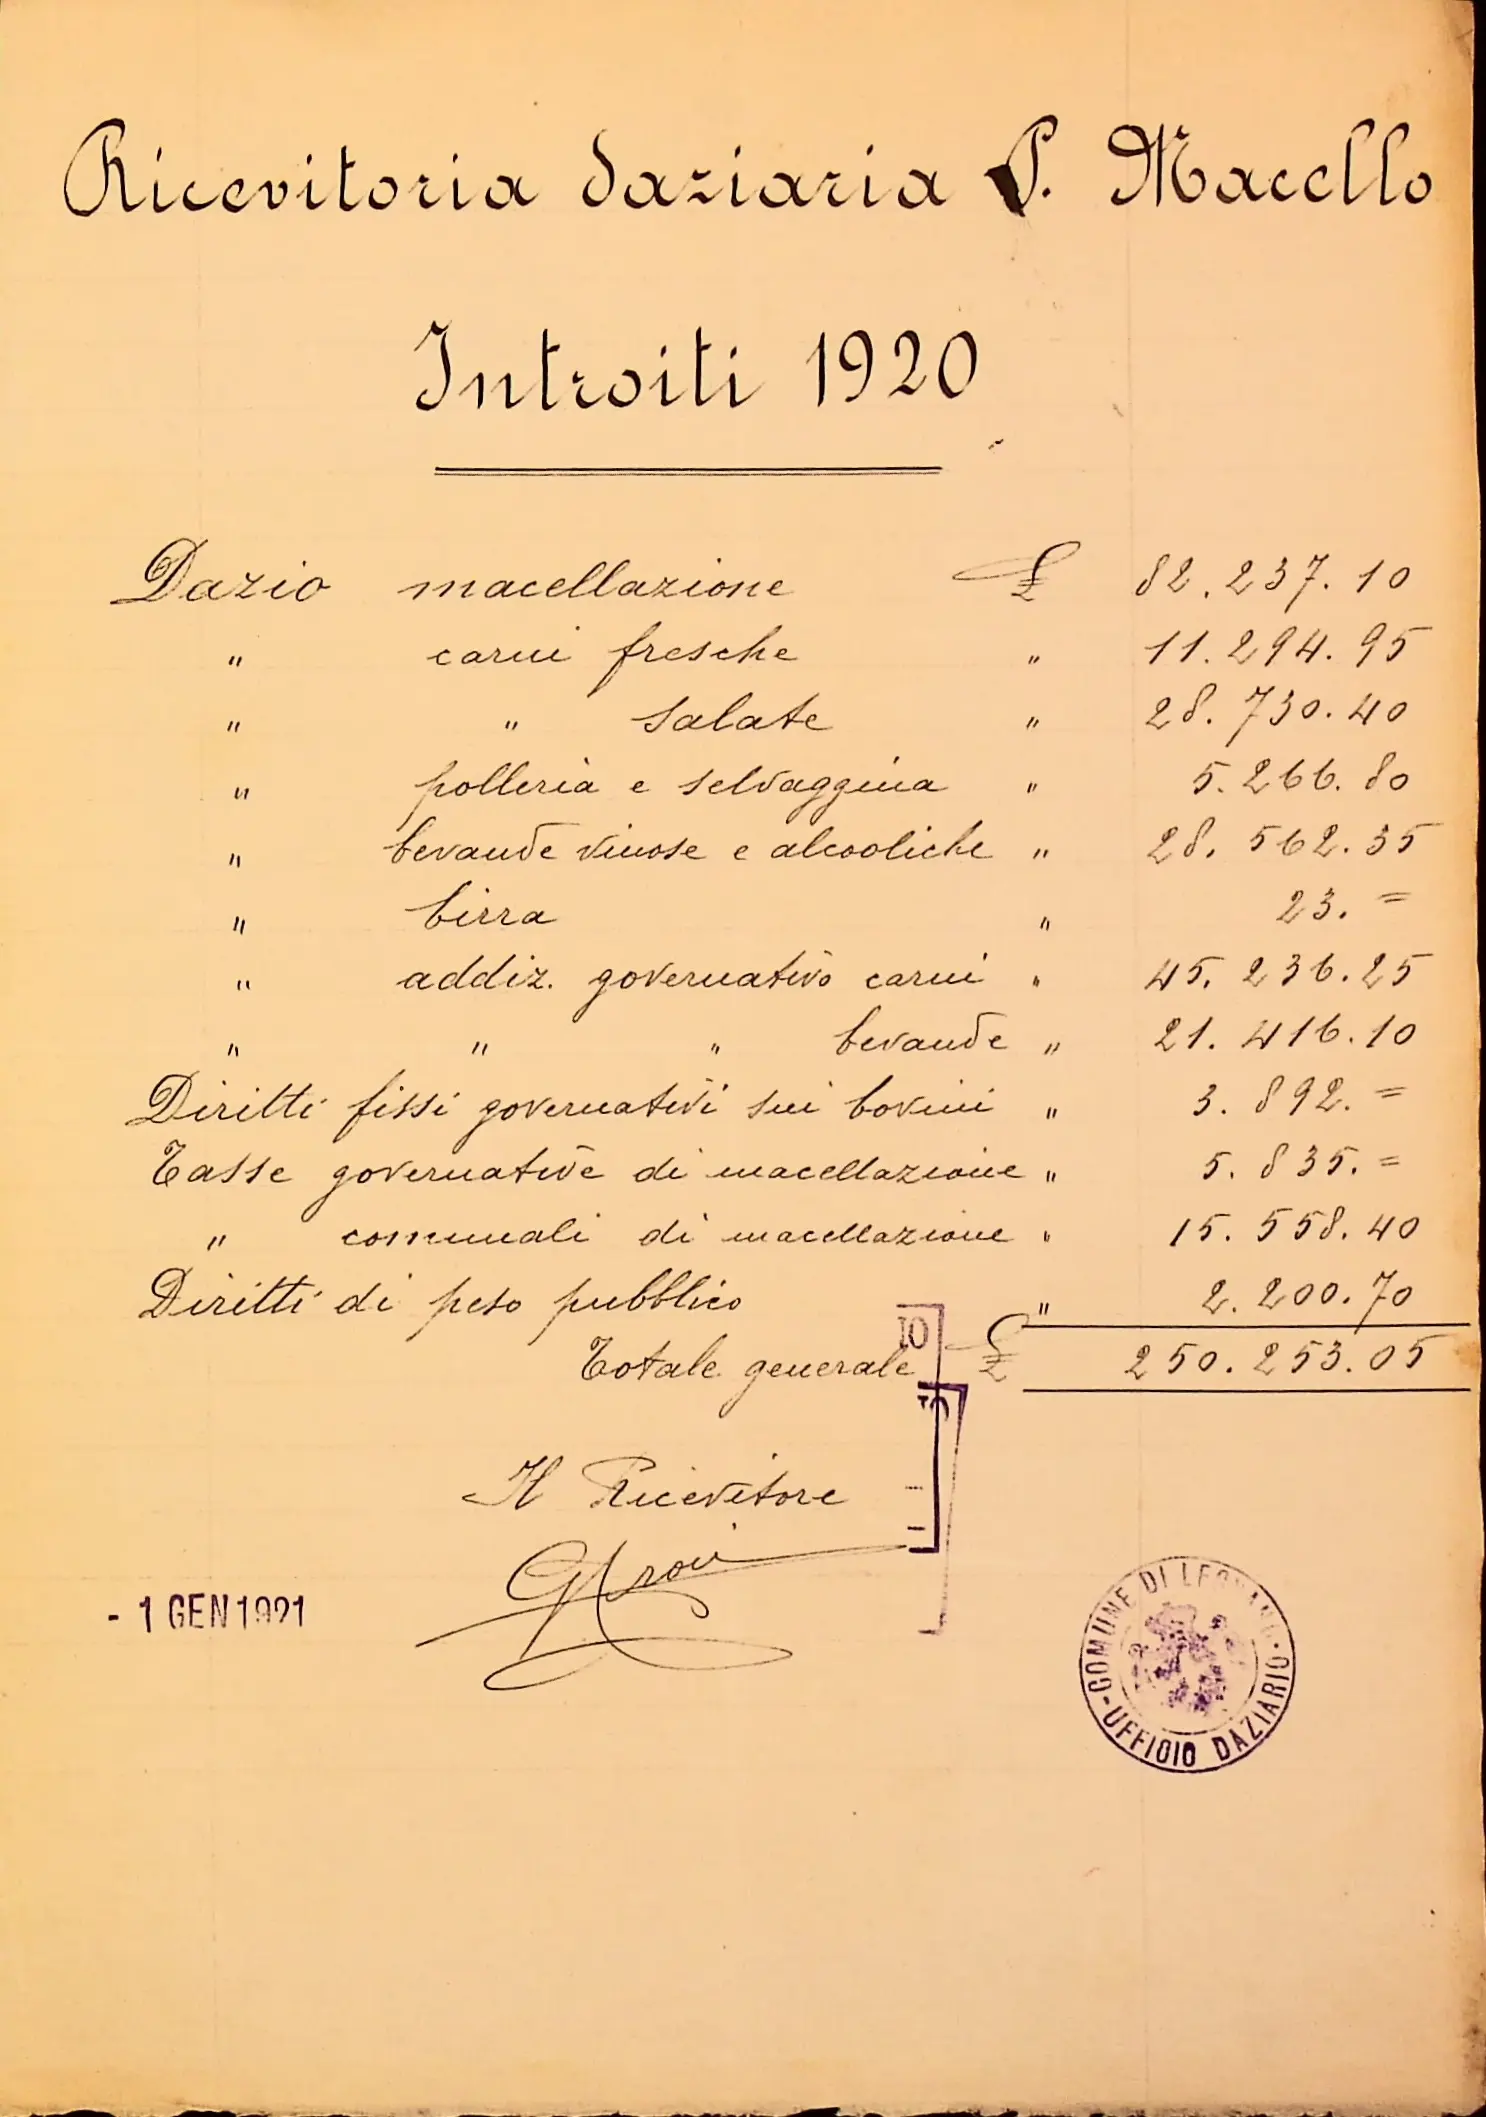 Ricevitoria daziaria P. Macello
Introiti 1920
Dazio macellazione £ 82.237.10
" carni fresche " 11.294.95
" " salate " 28.730.40
" polleria e selvaggina " 5.266.80
" bevande vinose e alcooliche " 28.562.35
" birra " 23.=
" addiz. governativo carni " 45.236.25
" " " bevande " 21.416.10
Diritti fissi governativi sui bovini " 3.892.=
Tasse governative di macellazione " 5.835.=
" comunali di macellazione " 15.558.40
Diritti di peso pubblico " 2.200.70
Totale generale £ 250.253.05
Il Ricevitore
- 1 GEN 1921
COMUNE DI LEGNANO - UFFICIO DAZIARIO